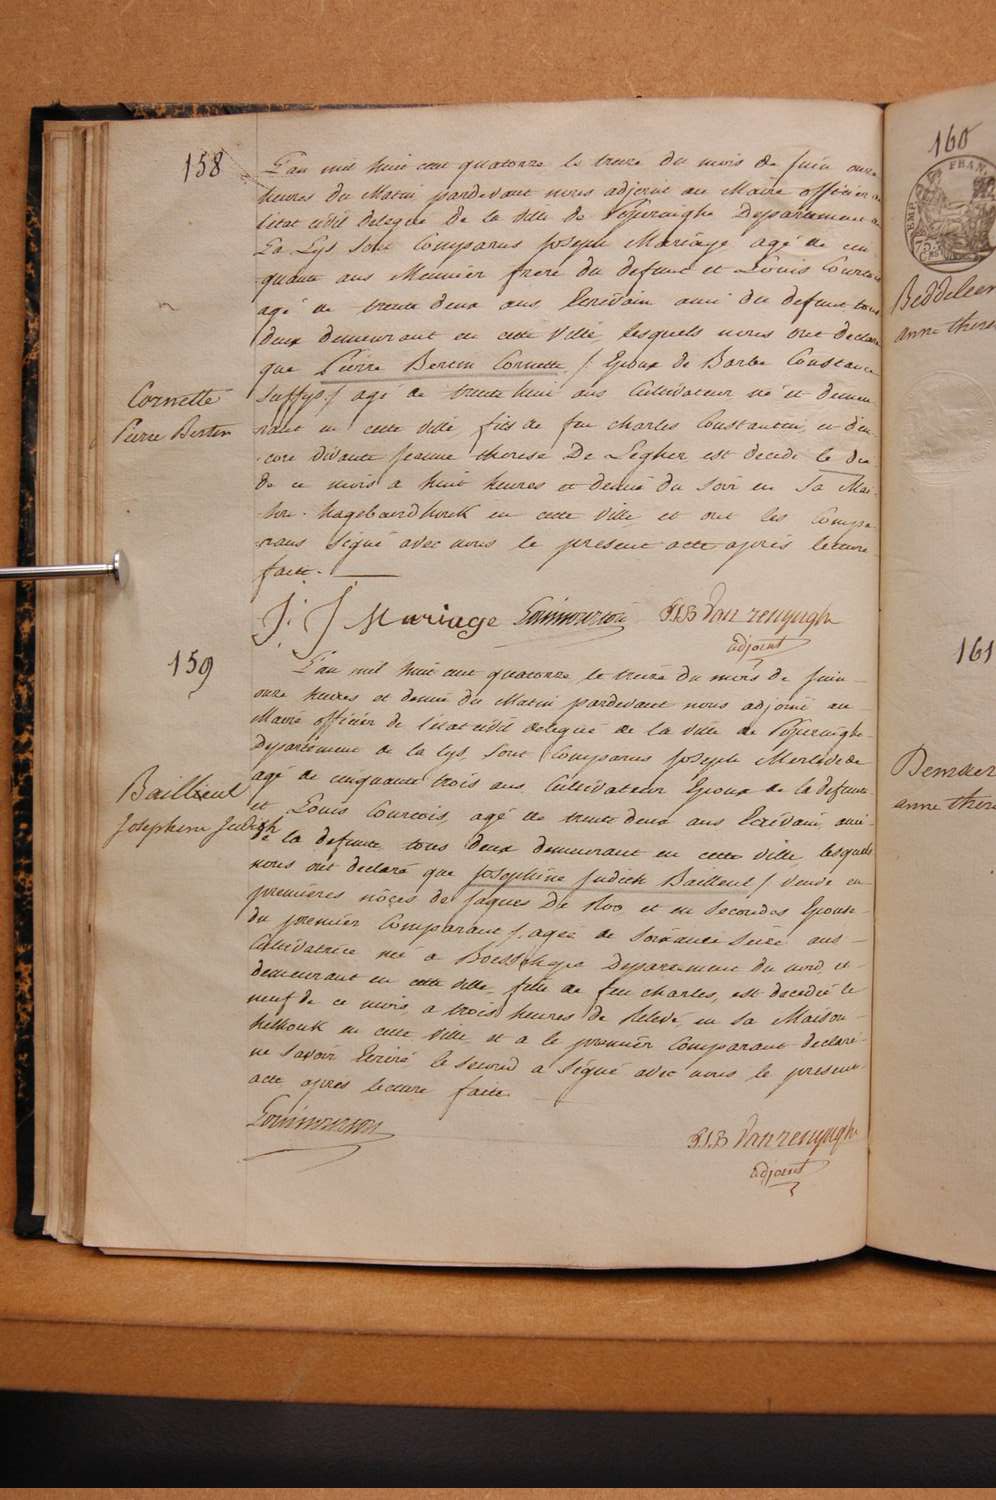 158
L'an mil huit cent quatorze le treize du mois de Juin onze
heures du Matin pardevant nous adjoint au Maire officier de
l'état civil delegué de la ville de Poperinghe Departement de
La Lys, sont Comparus Joseph Mariage agé de cin-
quante ans Meunier frere du defunt et Louis Courtois
agé de trente deux ans Ecrivain ami du defunt tous
deux demeurant en cette ville, lesquels nous ont declaré
que Pierre Bertin Cornette / Epoux de Barbe Constance
/ agé de trente huit ans Cultivateur né et demeu-
rant en cette ville, fils de feu charles Constantin, et d'en-
core vivante Jeanne therese De Legher est decedé le dix
de ce mois a huit heures et demie du soir en sa Mai-
son en cette ville et ont les Compa-
rans signé avec nous le present acte après lecture
faite.
Cornette
Pierre Bertin
J: J Mariage Louis Courtois P.J.B Van renynghe
adjoint
159
L'an mil huit cent quatorze le treize du mois de Juin
onze heures et demie du Matin pardevant nous adjoint au
Maire officier de l'état civil delegué de la ville de Poperinghe
Departement de la Lys, sont Comparus Joseph
agé de cinquante trois ans Cultivateur Epoux de la defunte
et Louis Courtois, agé de trente deux ans Ecrivain, ami
de la defunte tous deux demeurant en cette ville lesquels
nous ont declaré que Josephine Judith Bailleul / veuve en
premières nôces de Jaques De Roo et en secondes Epouse
du premier Comparant / agée de soixante seize ans
Cultivatrice née a Boesschepe Departement du nord, et
demeurant en cette ville, fille de feu charles, est decedée le
neuf de ce mois, a trois heures de Relevé en sa Maison
en cette ville, et a le premier Comparant declaré
ne savoir Ecrire, le second a signé avec nous le present
acte après lecture faite.
Baillieul
Josephine Judith
Louis Courtois P.J.B Van renynghe
adjoint
160
FRAN
EMP
75
Beddeleem
anne theres
161
anne there